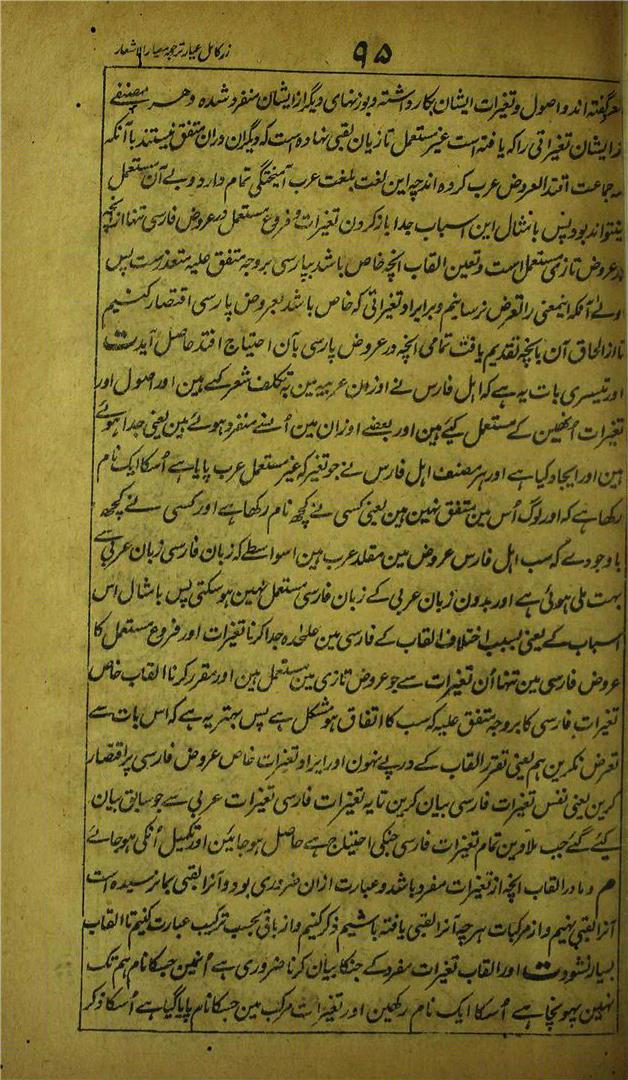 ۹۵
زر کامل عیار ترجمہ معیار الاشعار
شعر گفتہ اند و اصول و تغیرات ایشان بکار داشتہ و بوزنہای دیگر از ایشان منفرد شدہ و ہر مصنفے
از ایشان تغیراتی را کہ یافتہ است غیر مستعمل تازیان لقبی نہادہ است کہ دیگران دران متفق نیستند باآنکہ
ہمہ جماعت اقتدا لعروض عرب کردہ اند چہ این لغت بلغت عرب آمیختگی تمام دارد و بے آن مستعمل
نیتواند بود پس بامثال این اسباب جدا بازکردن تغیرات و فروع مستعمل در عروض فارسی تنہا از انچہ
در عروض تازی مستعمل است و تعین القاب انچہ خاص باشد بپارسی بروجہ متفق علیہ متعذر ست پس
اولے آنکہ اینمعنی را تعرض نرسانیم و برایراد تغیراتی کہ خاص باشد بعروض پارسی اقتصار کنیم
تا از الحاق آن بانچہ تقدیم یافت تمامی انچہ در عروض پارسی بآن احتیاج افتد حاصل آید ت
اور تیسری بات یہ ہے کہ اہل فارس نے اوزان عربیہ مین بہ تکلف شعر کہے ہین اور اصول اور
تغیرات اُنھین کے مستعمل کیے ہین اور بعضے اوزان مین اُنسے منفرد ہوئے ہین یعنی جدا ہوئے
ہین اور ایجاد کیا ہے اور ہر مصنف اہل فارس نے جو تغیر کہ غیر مستعمل عرب پایا ہے اُسکا ایک نام
رکھا ہے کہ اور لوگ اُس مین متفق نہین ہین یعنی کسی نے کچھ نام رکھا ہے اور کسی نے کچھ
باوجودے کہ سب اہل فارس عروض مین مقلد عرب ہین اسواسطے کہ زبان فارسی زبان عربی سے
بہت ملی ہوئی ہے اور بدون زبان عربی کے زبان فارسی مستعمل نہین ہوسکتی پس بامثال اس
اسباب کے یعنی بسبب اختلاف القاب کے فارسی مین علٰحدہ جدا کرنا تغیرات اور فروع مستعمل کا
عروض فارسی مین تنہا اُن تغیرات سے جو عروض تازی مین مستعمل ہین اور مقرر کرنا القاب خاص
تغیرات فارسی کا بروجہ متفق علیہ کہ سب کا اتفاق ہو مشکل ہے پس بہتر یہ ہے کہ اس بات سے
تعرض نکرین ہم یعنی تقرر القاب کے درپے نہون اور ایراد تغیرات خاص عروض فارسی پر اقتصار
کرین یعنی نفس تغیرات فارسی بیان کرین تا یہ تغیرات فارسی تغیرات عربی سے جو سابق بیان
کیے گئے جب ملادین تمام تغیرات فارسی جنکی احتیاج ہے حاصل ہوجائین اور تکمیل اُنکی ہوجائے
ھم و مادر القاب انچہ از تغیرات مفرد باشد و عبارت ازان ضروری بود و آنرا لقبی بما نرسیدہ است
آنرا لقبی بنہیم و از مرکبات ہرچہ آنرا لقبی یافتہ باشیم ذکر کنیم و از باقی بحسب ترکیب عبارت کنیم تا القاب
بسیار نشود ت اور القاب تغیرات مفرد کے جنکا بیان کرنا ضروری ہے اُنمین جسکا نام ہم تک
نہین پہونچا ہے اُسکا ایک نام رکھین اور تغیرات مرکب مین جسکا نام پایا گیا ہے اُسکا ذکر